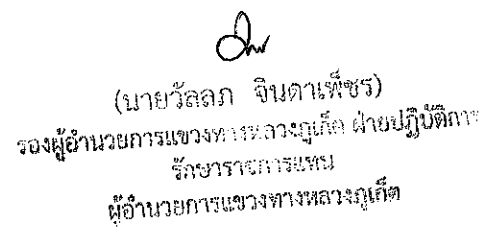 (นายวัลลภ จินดาเพ็ชร)
รองผู้อำนวยการแขวงทางหลวงภูเก็ต ฝ่ายปฏิบัติการ
รักษาราชการแทน
ผู้อำนวยการแขวงทางหลวงภูเก็ต